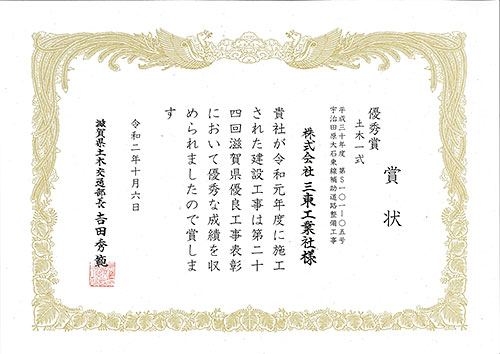 賞状
優秀賞
土木一式
平成三十年度 第S一〇一ー〇五号
宇治田原大石東線補助道路整備工事
株式会社 三東工業社様
貴社が令和元年度に施工
された建設工事は第二十
四回滋賀県優良工事表彰
において優秀な成績を収
められましたので賞しま
す
令和二年十月六日
滋賀県土木交通部長 吉田秀範